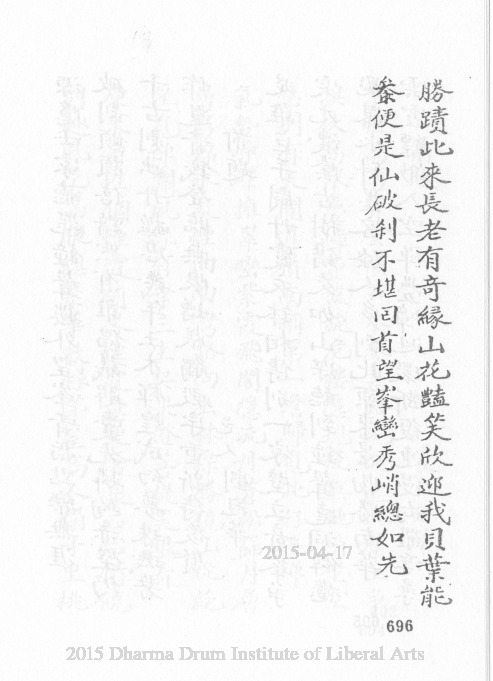 勝蹟此來長老有奇緣山花豔笑欣迎我貝葉能
叅便是仙破刹不堪回首望峯巒秀峭總如先
2015-04-17
696
2015 Dharma Drum Institute of Liberal Arts